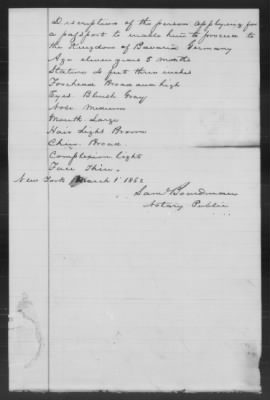 Discription of the person applying for
a passport to enable him to proceed to
the Kingdom of Bavaria Germany
Age eleven years 5 months
Stature 4 feet three inches
Forehead Broad and high
Eyes Bluish Gray
Nose Medium
Mouth Large
Hair Light Brown
Chin Broad
Complexion Light
Face Thin.
New York March 1st 1862
Saml Boardman
Notary Public